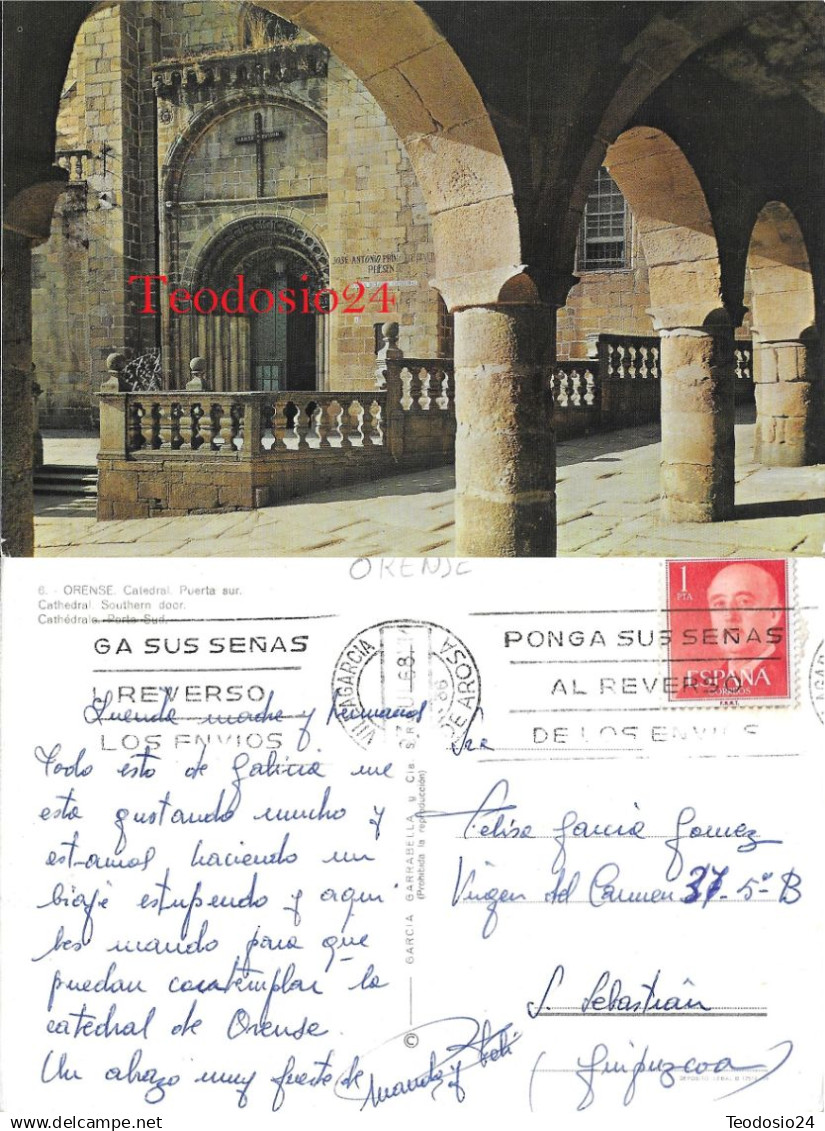 JOSE ANTONIO PRIM
PRESEN
Teodosio24
ORENSE
6. - ORENSE. Catedral. Puerta sur.
Cathedral. Southern door.
Cathédrale. Porte Sud.
GA SUS SEÑAS
REVERSO
LOS ENVIOS
VILLAGARCIA
DE AROSA
PONGA SUS SEÑAS
AL REVERSO
DE LOS ENVIOS
1
PTA
ESPAÑA
CORREOS
F.N.M.T.
madre y hermanos
Todo esto de Galicia me
esta gustando mucho y
estamos haciendo un
biaje estupendo y aqui
les mando para que
puedan contemplar la
catedral de Orense.
Un abrazo muy fuerte de
GARCIA GARRABELLA y Cia
(Prohibida la reproducción)
©
Sra
Felisa Garcia Gomez
Virgen del Carmen 37-5º B
S. Sebastián
(Guipuzcoa)
Teodosio24